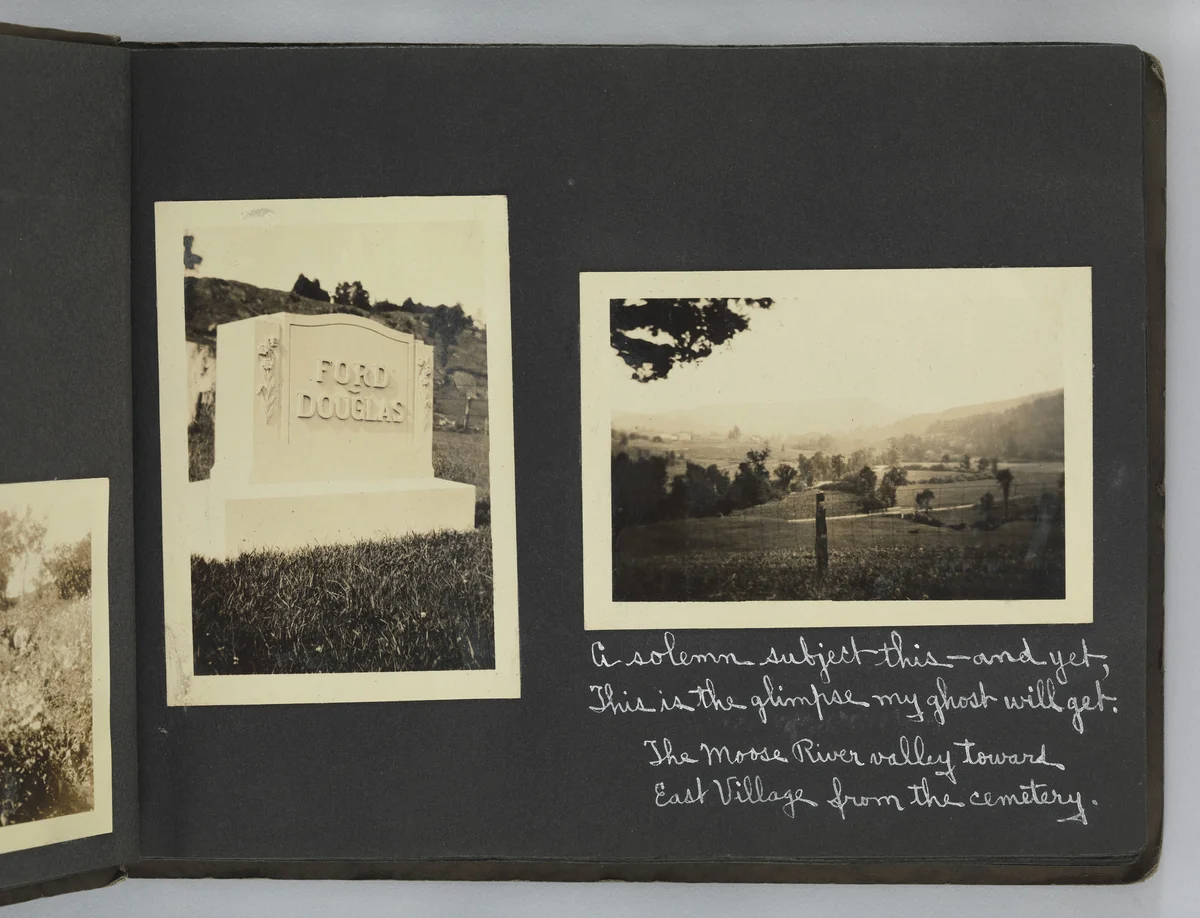 FORD
DOUGLAS
A solemn subject this—and yet,
This is the glimpse my ghost will get.
The Moose River valley toward
East Village from the cemetery.